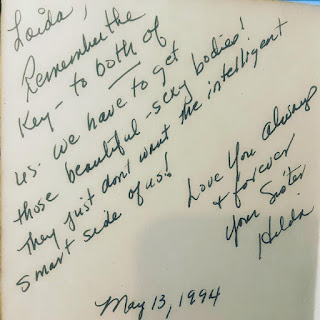 Loida,
Remember the
Key - to both of
us. we have to get
those beautiful - sexy bodies!
They just don't want the intelligent
smart side of us!
Love You always
+ forever
your Sister
Hilda
May 13, 1994